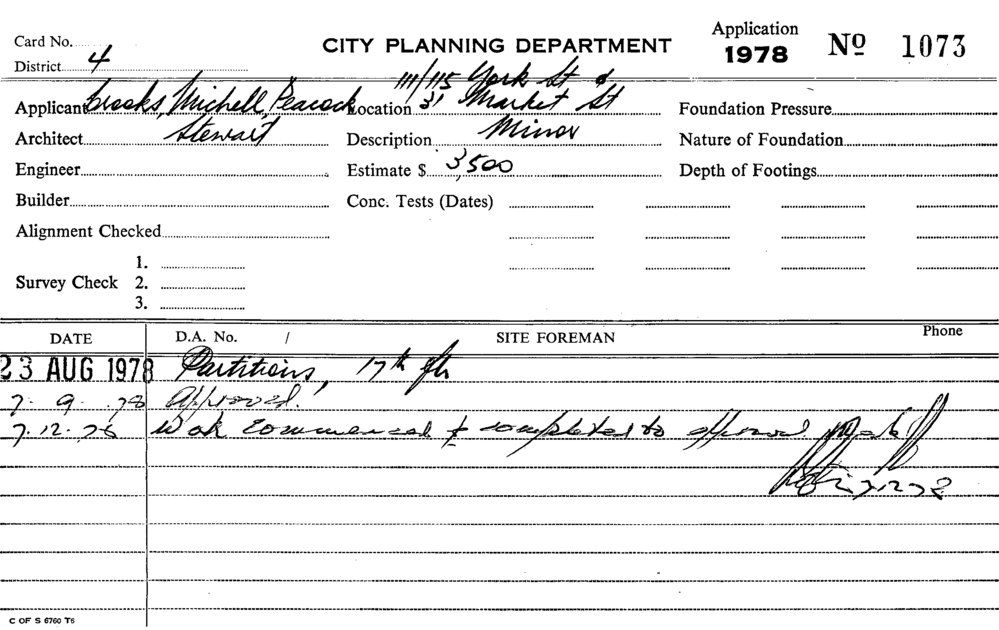 Card No.
District 4
CITY PLANNING DEPARTMENT
Application
1978 No 1073
111/115 York St &
Applicant Crooks, Michell, Peacock Location 31 Market St Foundation Pressure
Architect Stewart Description Minor Nature of Foundation
Engineer Estimate $ 3,500 Depth of Footings
Builder Conc. Tests (Dates)
Alignment Checked
1.
Survey Check 2.
3.
DATE D.A. No. / SITE FOREMAN Phone
23 AUG 1978 Partitions, 17th flr
7. 9. 78 Approved.
7.12.78 Work commenced & completed to approval
7.12.78
C OF S 6760 T6